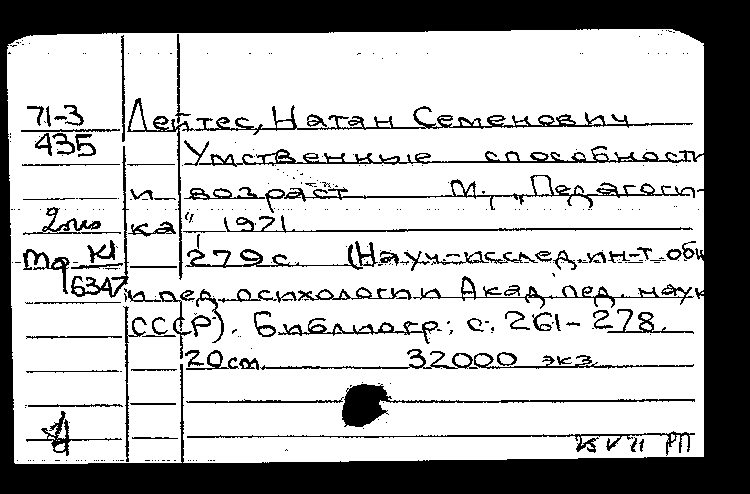 71-3 Лейтес, Натан Семенович
435 Умственные способности
и возраст М., „Педагоги-
ка“ 1971.
279 с. (Науч-исслед. ин-т общ
6347 и пед. психологии Акад. пед. наук
СССР). Библиогр.: с. 261-278.
20 см. 32000 экз.
25 V 71 РП